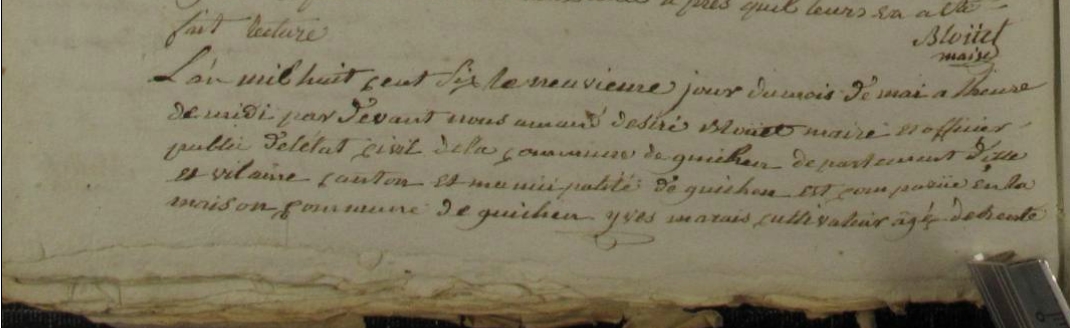 a près quil leurs en a été
fait lecture
Bloüet
maire
L'an mil huit çent six le neuvieme jour du mois de mai a lheure
de midi par devant nous amand desiré Bloüet maire et officier
public de l'état çivil de la çommune de guichen departement d'ille
et vilaine çanton et municipalité de guichen est çomparüe en la
maison çommune de guichen yves marais cultivateur âgé de trente